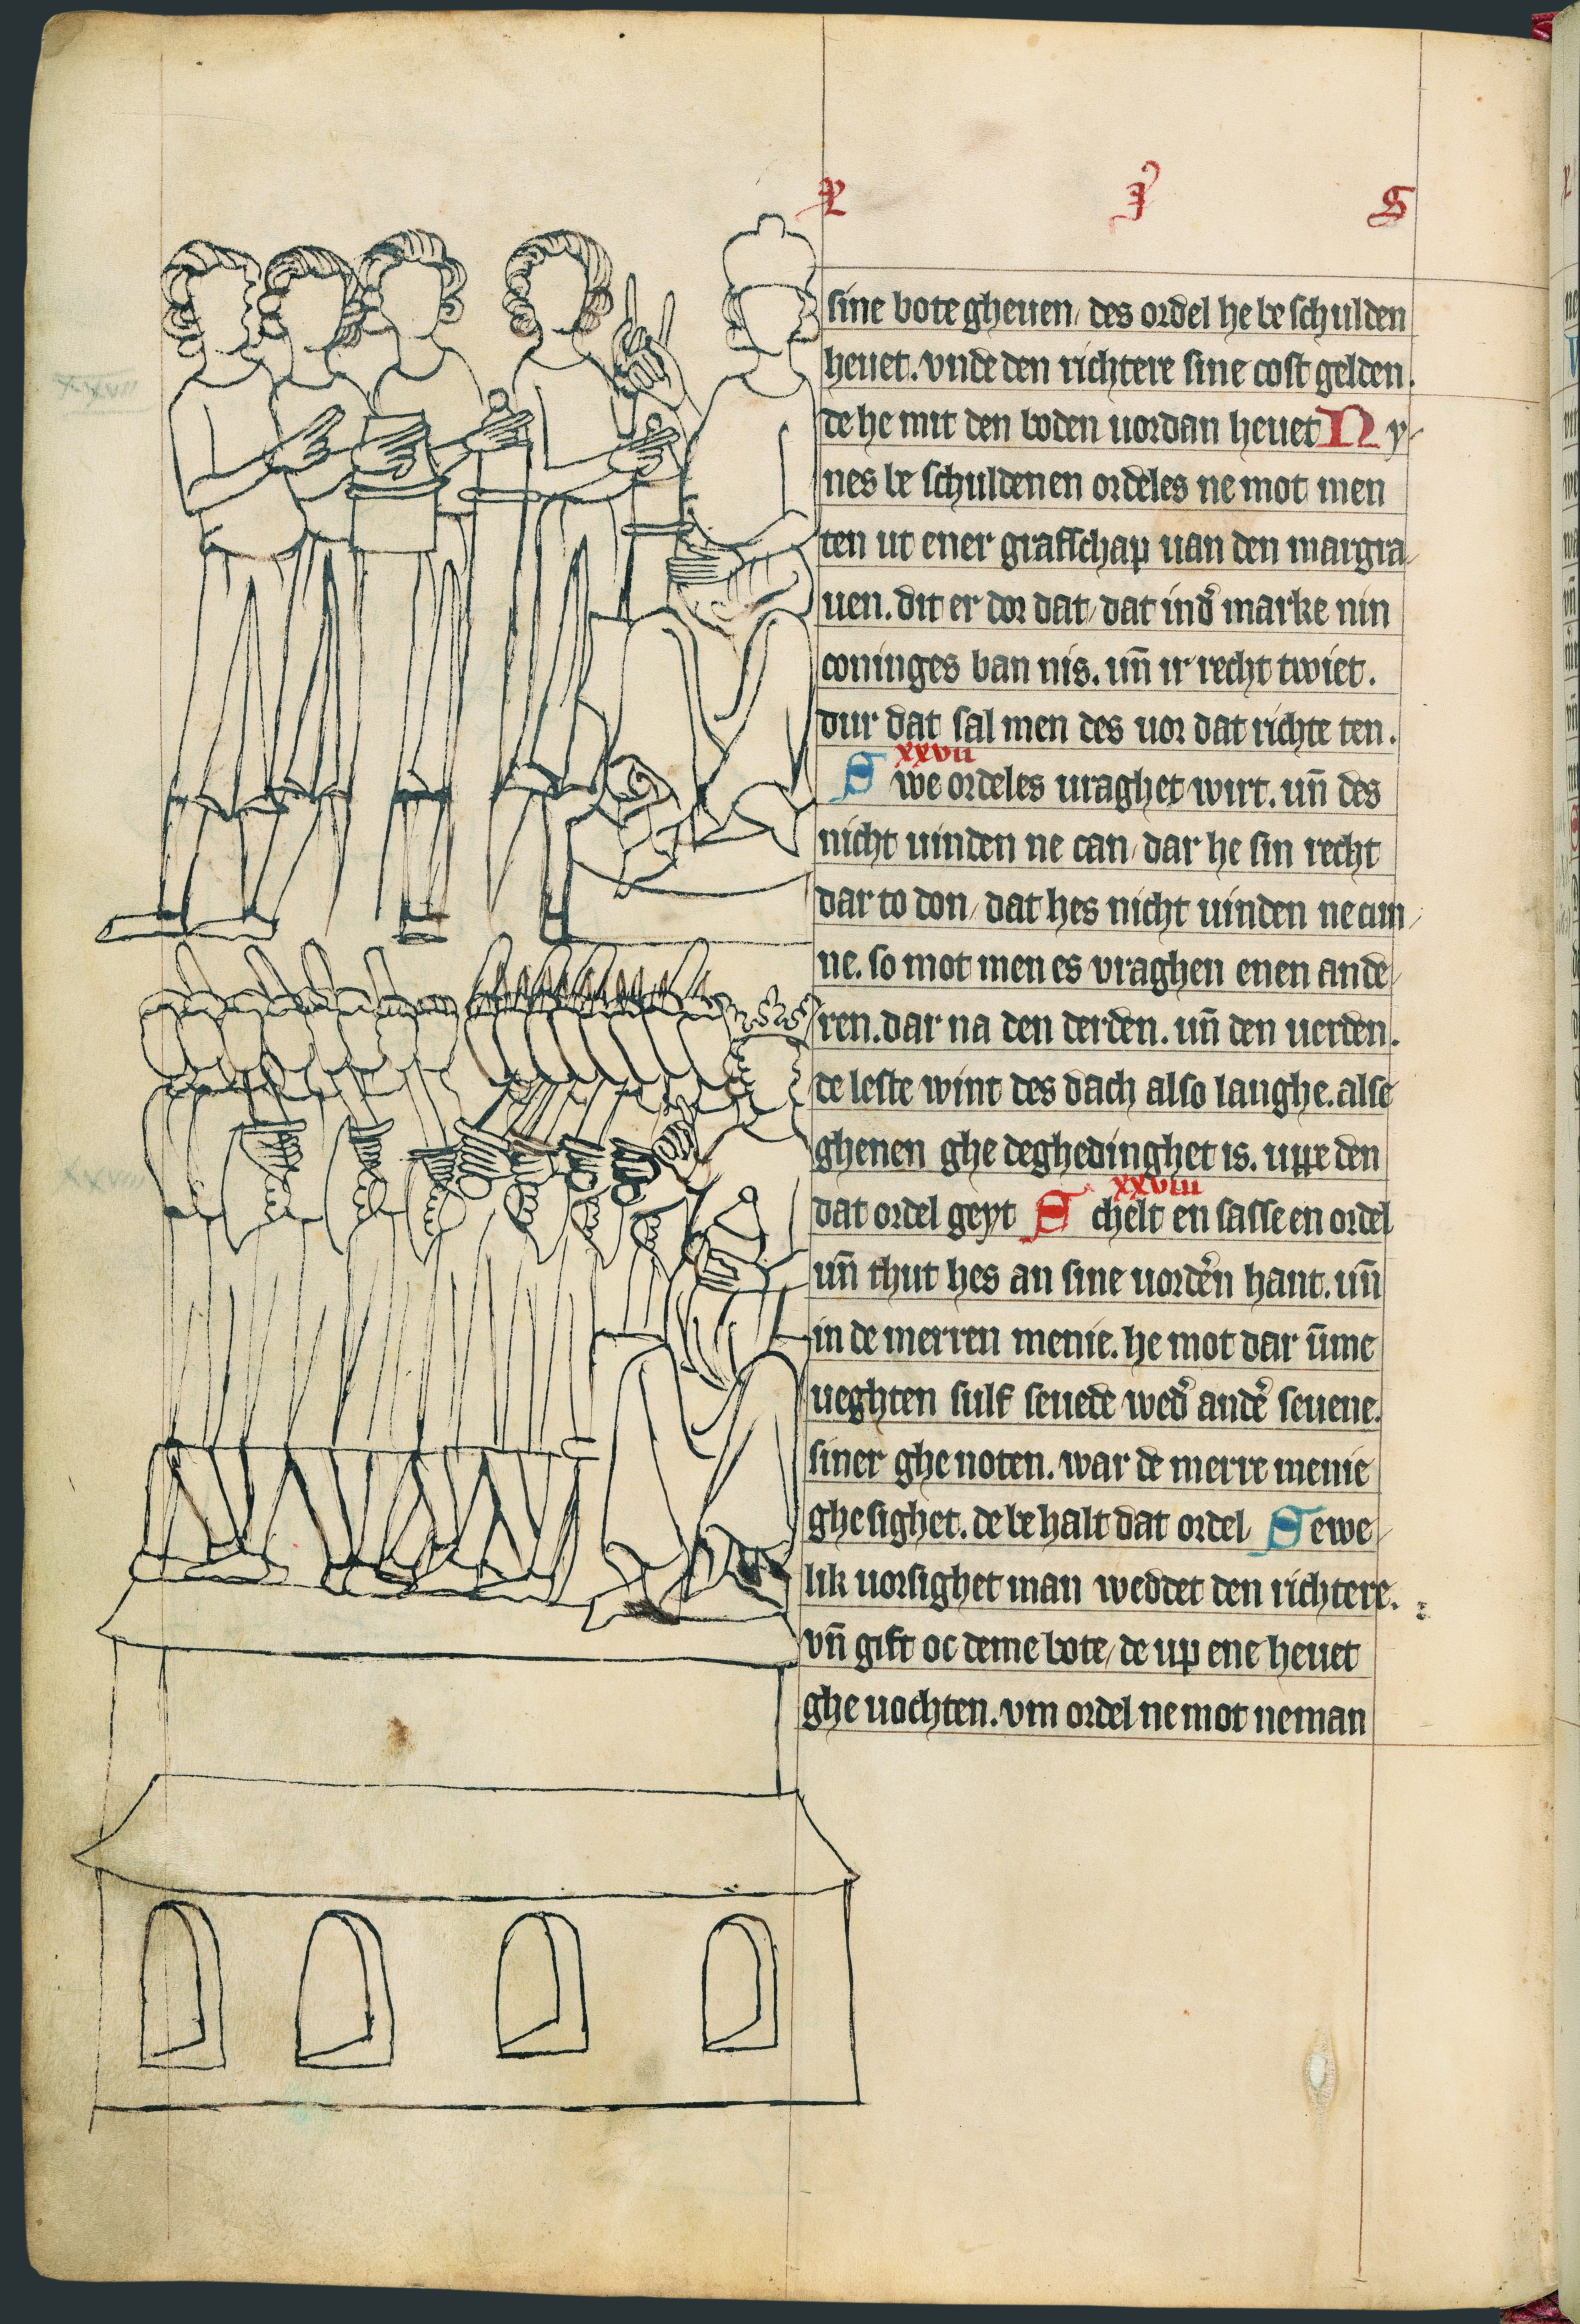 sine bote gheuen/ des ordel he be schulden
heuet. vnde den richtere sine cost gelden.
de he mit den boden uordan heuet N y-
nes be schuldenen ordeles ne mot men
ten ut ener grafschap uan den margra/
uen. dit er dor dat/ dat in dˀ marke nin
coninges ban nis. un̄ ir recht twiet.
dur dat sal men des uor dat richte ten.
xxvii
S we ordeles uraghet wirt. un̄ des
nicht uinden ne can/ dar he sin recht
dar to don/ dat hes nicht uinden ne cun/
ne. so mot men es vraghen enen ande/
ren. dar na den derden. un̄ den uerden.
de leste wint des dach also langhe. alse
ghenen ghe deghedinghet is. uppe den
xxviii
dat ordel geyt S chelt en sasse en ordel
un̄ thut hes an sine uordˀen hant. un̄
in de merren menie. he mot dar ūme
ueghten sulf seuede wedˀ andˀe seuene.
siner ghe noten. war de merre menie
ghe sighet. de be halt dat ordel S ewe/
lik uorsighet man weddet den richtere.
vn̄ gift oc deme bote/ de up ene heuet
ghe uochten. vm ordel ne mot neman
xxvii
xxviii